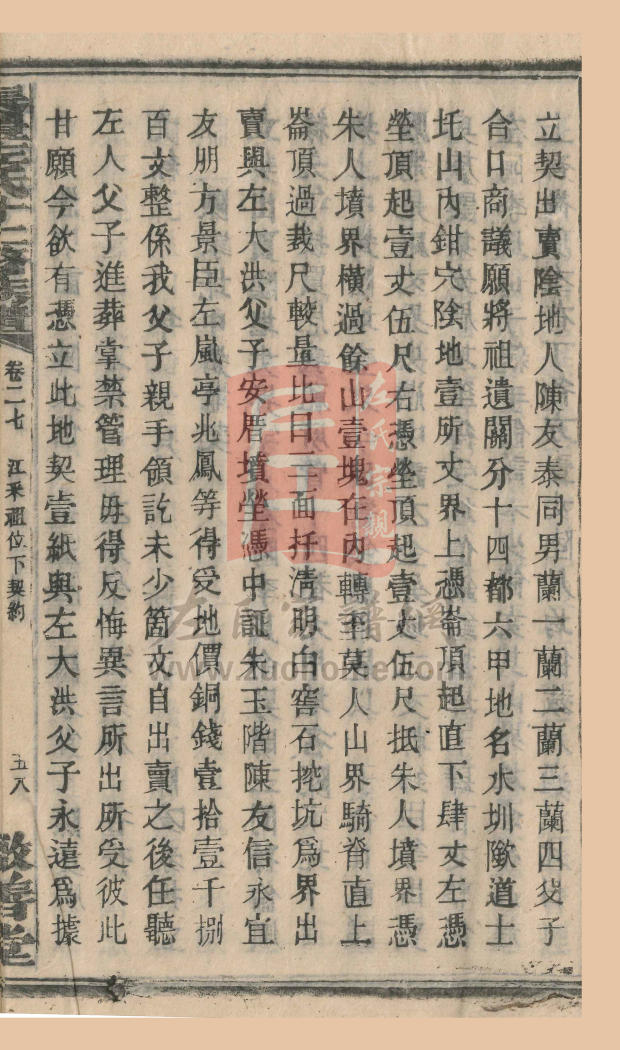 立契出賣陰地人陳友泰同男蘭一蘭二蘭三蘭四父子
合口商議願將祖遺關分十四都六甲地名水圳墩道士
圫山內鉗穴陰地壹所丈界上憑崙頂起直下肆丈左憑
塋頂起壹丈伍尺右憑塋頂起壹丈伍尺抵朱人墳界憑
朱人墳界橫過餘山壹塊在內轉至莫人山界騎脊直上
崙頂過裁尺較量比日三面扦淸明白窖石挖坑爲界出
賣與左大洪父子安厝墳塋憑中証朱玉階陳友信永宜
友朋方景臣左嵐亭兆鳳等得受地價銅錢壹拾壹千捌
百文整係我父子親手領訖未少箇文自出賣之後任聽
左人父子進葬掌禁管理毋得反悔異言所出所受彼此
甘願今欲有憑立此地契壹紙與左大洪父子永遠爲據
左氏十二修族譜
卷二七
江釆祖位下契約
五八
敬善堂
左氏宗親
www.zuohome.com